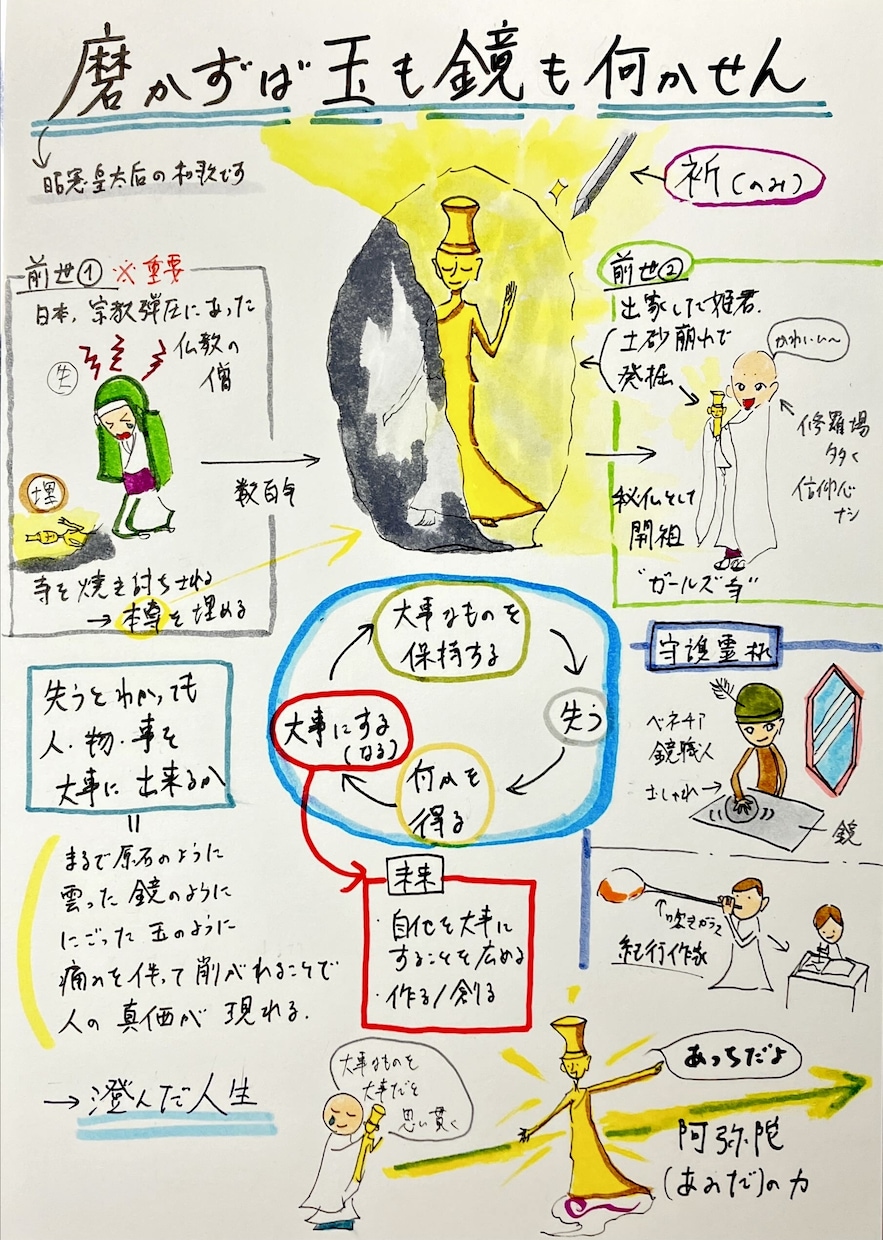 磨かずば玉も鏡も何かせん
昭憲皇太后の和歌です
(のみ)
前世① ※重要
日本、宗教弾圧にあった
仏教の
僧
失
埋
寺を焼き討ちされる
→本尊を埋める
数百年
前世②
出家した姫君.
土砂崩れで
発掘
かわいい〜
修羅場
多く
信仰心
ナシ
秘仏として
開祖
"ガールズ寺"
大事なものを
保持する
失う
何かを
得る
大事にする
(なる)
失うとわかっても
人・物・事を
大事に出来るか
||
まるで原石のように
曇った鏡のように
にごった玉のように
痛みを伴って削がれることで
人の真価が現れる.
→澄んだ人生
未来
・自他を大事に
することを広める
・作る/創る
守護霊様
ベネチア
鏡職人
おしゃれ→
鏡
↑吹きガラス
紀行作家
大事なものを
大事だと
思い貫く
あっちだよ
阿弥陀
(あみだ)の力